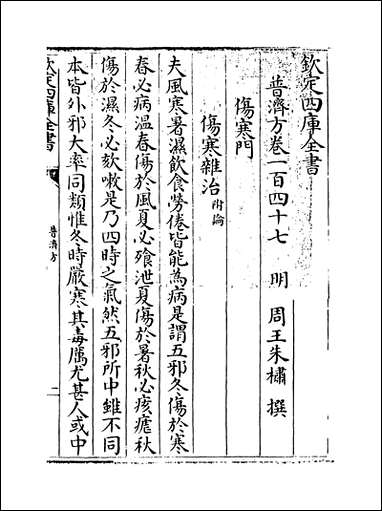 欽定四庫全書
普濟方卷一百四十七
明 周王朱橚 撰
傷寒門
傷寒雜治附論
夫風寒暑濕飲食勞倦皆能為病是謂五邪冬傷於寒
春必病溫春傷於風夏必飧泄夏傷於暑秋必痎瘧秋
傷於濕冬必欬嗽是乃四時之氣然五邪所中雖不同
本皆外邪大率同類惟冬時嚴寒其毒厲尤甚人或中
欽定四庫全書
普濟方